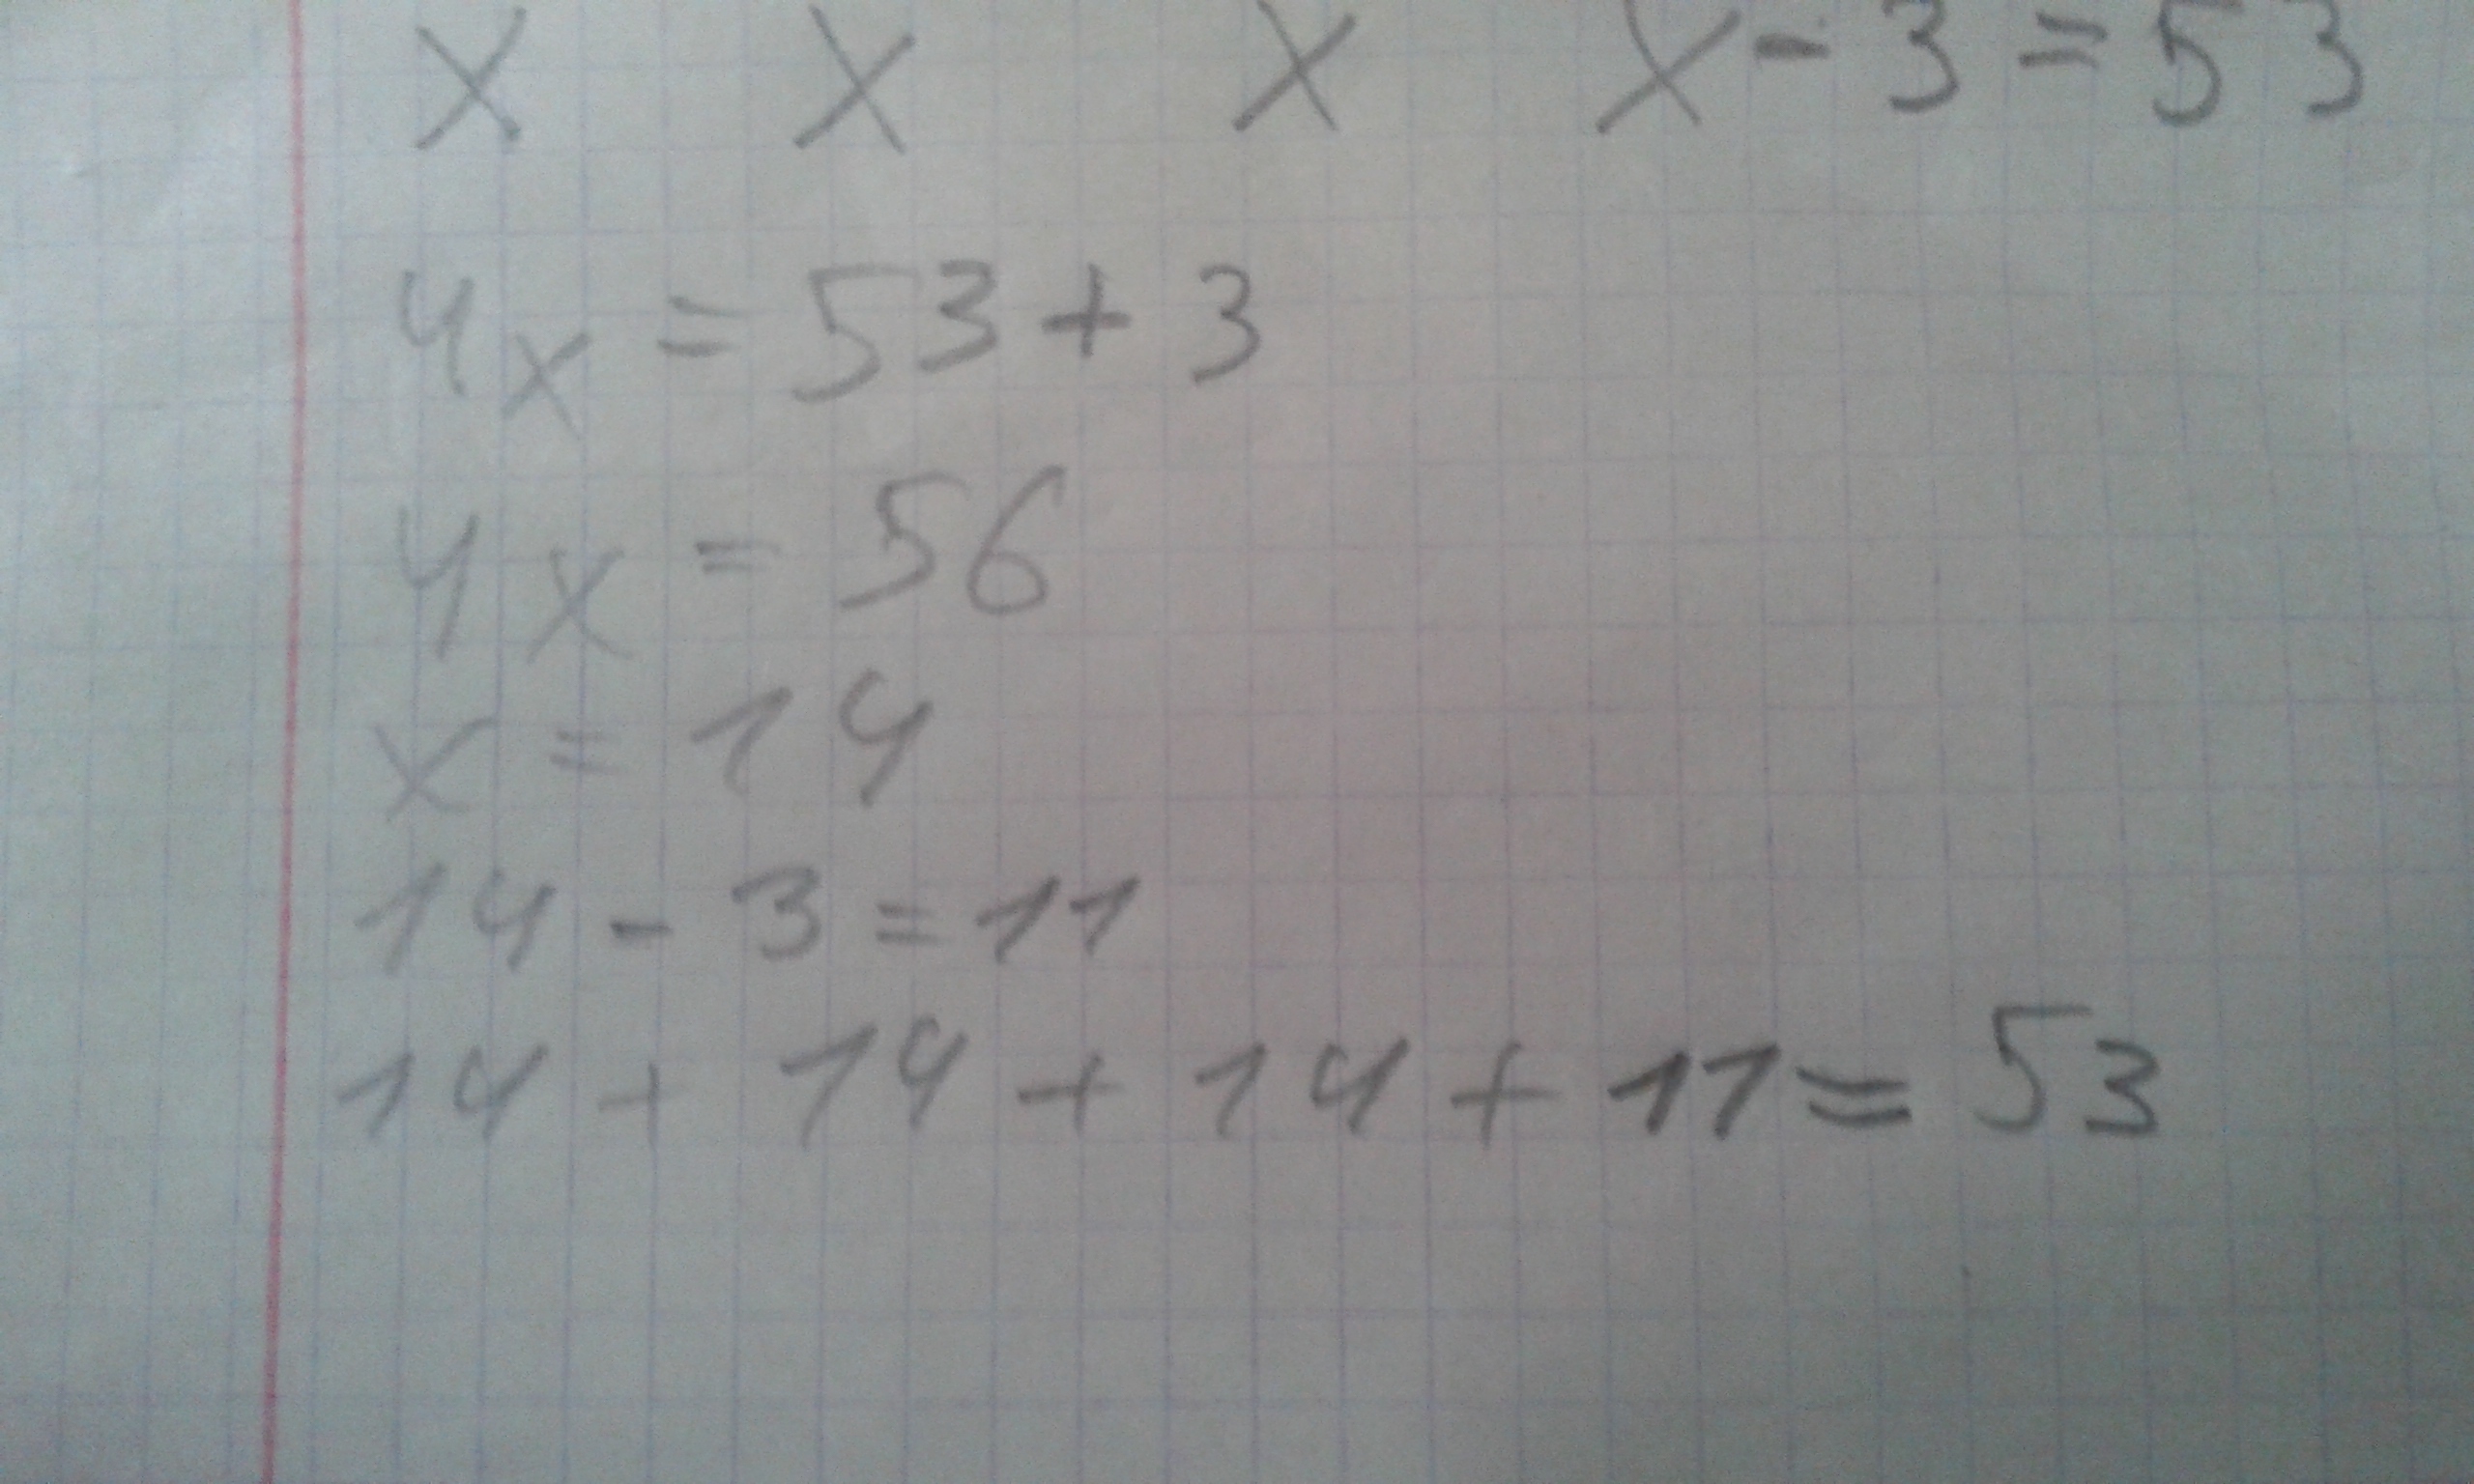 x x x x - 3 = 53
4x = 53 + 3
4x = 56
x = 14
14 - 3 = 11
14 + 14 + 14 + 11 = 53